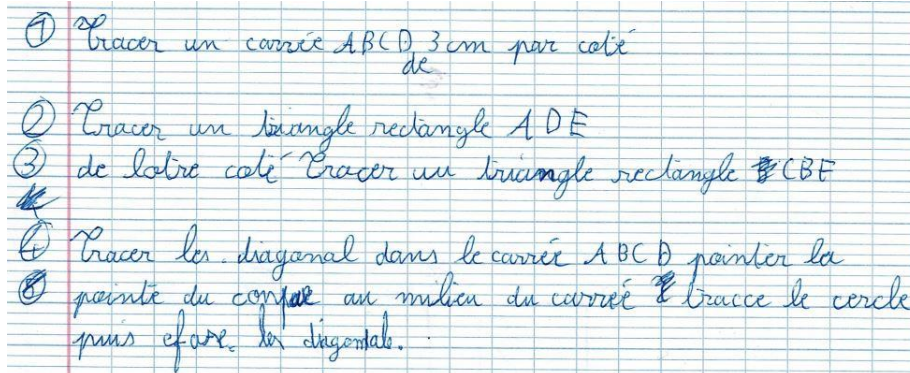 ① Tracer un carrée ABCD 3 cm par coté
de
② Tracer un triangle rectangle ADE
③ de lotre coté Tracer un triangle rectangle CBF
④ Tracer les diagonal dans le carrée ABCD pointer la
pointe du au milieu du carreé tracce le cercle
puis efase les diagonale.